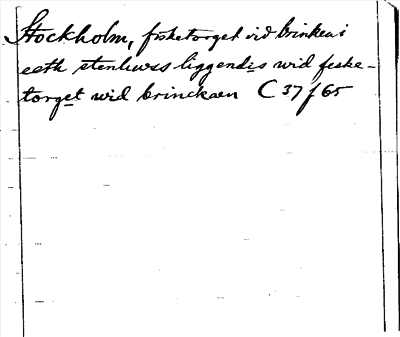 Stockholm, fisketorget vid brinken i
eeth stenhwss liggendis wid fiske-
torget wid brinckaen C 37 f 65